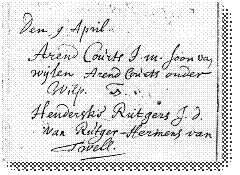 Den 9 April.
Arend Coerts J. m. soon van
wijlen Arend Coerts onder
Wilp.
Henderskè Rutgers J. d.
van Rutger Hermens van